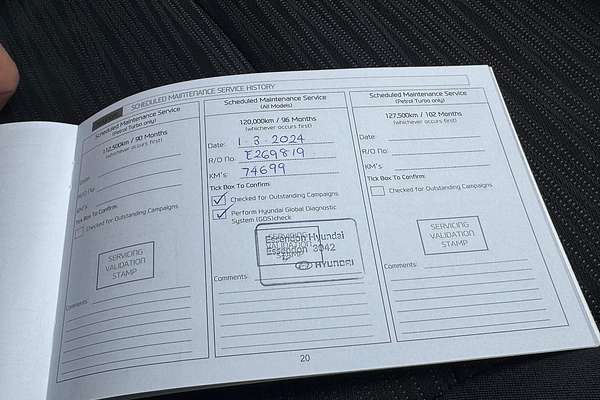 SCHEDULED MAINTENANCE SERVICE HISTORY
Scheduled Maintenance Service
(Petrol Turbo only)
112,500km / 90 Months
(whichever occurs first)
Date:
R/O No.
KM's:
Tick Box To Confirm:
Checked for Outstanding Campaigns
SERVICING
VALIDATION
STAMP
Comments:
Scheduled Maintenance Service
(All Models)
120,000km / 96 Months
(whichever occurs first)
Date: 1-3-2024
R/O No. E269819
KM's: 74699
Tick Box To Confirm:
Checked for Outstanding Campaigns
Perform Hyundai Global Diagnostic
System (GDS)check
Essendon Hyundai
Essendon 3042
HYUNDAI
Comments:
Scheduled Maintenance Service
(Petrol Turbo only)
127,500km / 102 Months
(whichever occurs first)
Date:
R/O No.
KM's:
Tick Box To Confirm:
Checked for Outstanding Campaigns
SERVICING
VALIDATION
STAMP
Comments:
20